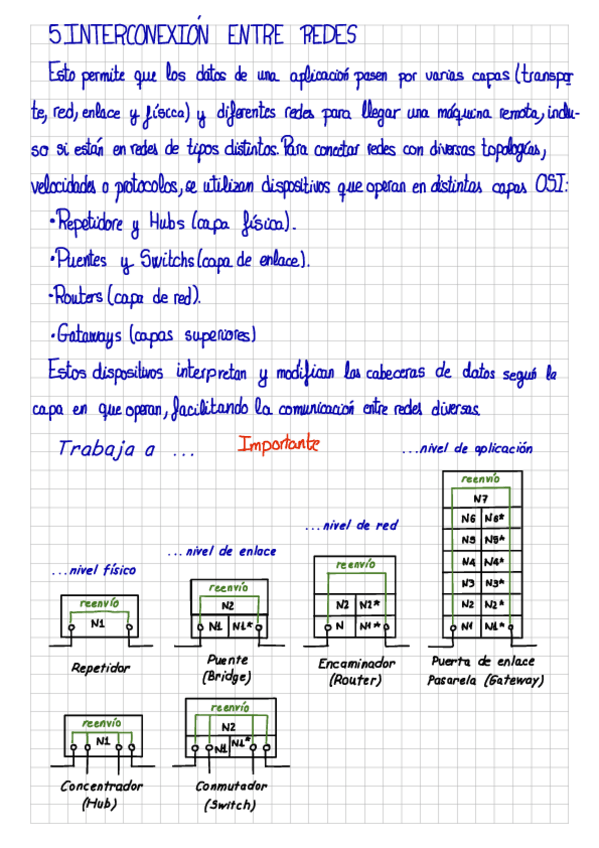 5 INTERCONEXIÓN ENTRE REDES
Esto permite que los datos de una aplicación pasen por varias capas (transpor
te, red, enlace y físcca) y diferentes redes para llegar una máquina remota, inclu-
so si están en redes de tipos distintos. Para conectar redes con diversas topologías,
velocidades o protocolos, se utilizan dispositivos que operan en distintas capas OSI:
• Repetidore y Hubs (capa física).
• Puentes y Switchs (capa de enlace).
• Routers (capa de red).
• Gataways (capas superiores)
Estos dispositivos interpretan y modifican las cabeceras de datos según la
capa en que operan, facilitando la comunicación entre redes diversas.
Trabaja a ...
Importante
...nivel de aplicación
reenvío
N7
N6 N6*
N5 N5*
N4 N4*
N3 N3*
N2 N2*
N1 N1*
...nivel de red
reenvío
N2 N2*
N N1*
...nivel de enlace
reenvío
N2
N1 N1*
...nivel físico
reenvío
N1
Repetidor
Puente
(Bridge)
Encaminador
(Router)
Puerta de enlace
Pasarela (Gateway)
reenvío
N1
reenvío
N2
N1 N1*
Concentrador
(Hub)
Conmutador
(Switch)